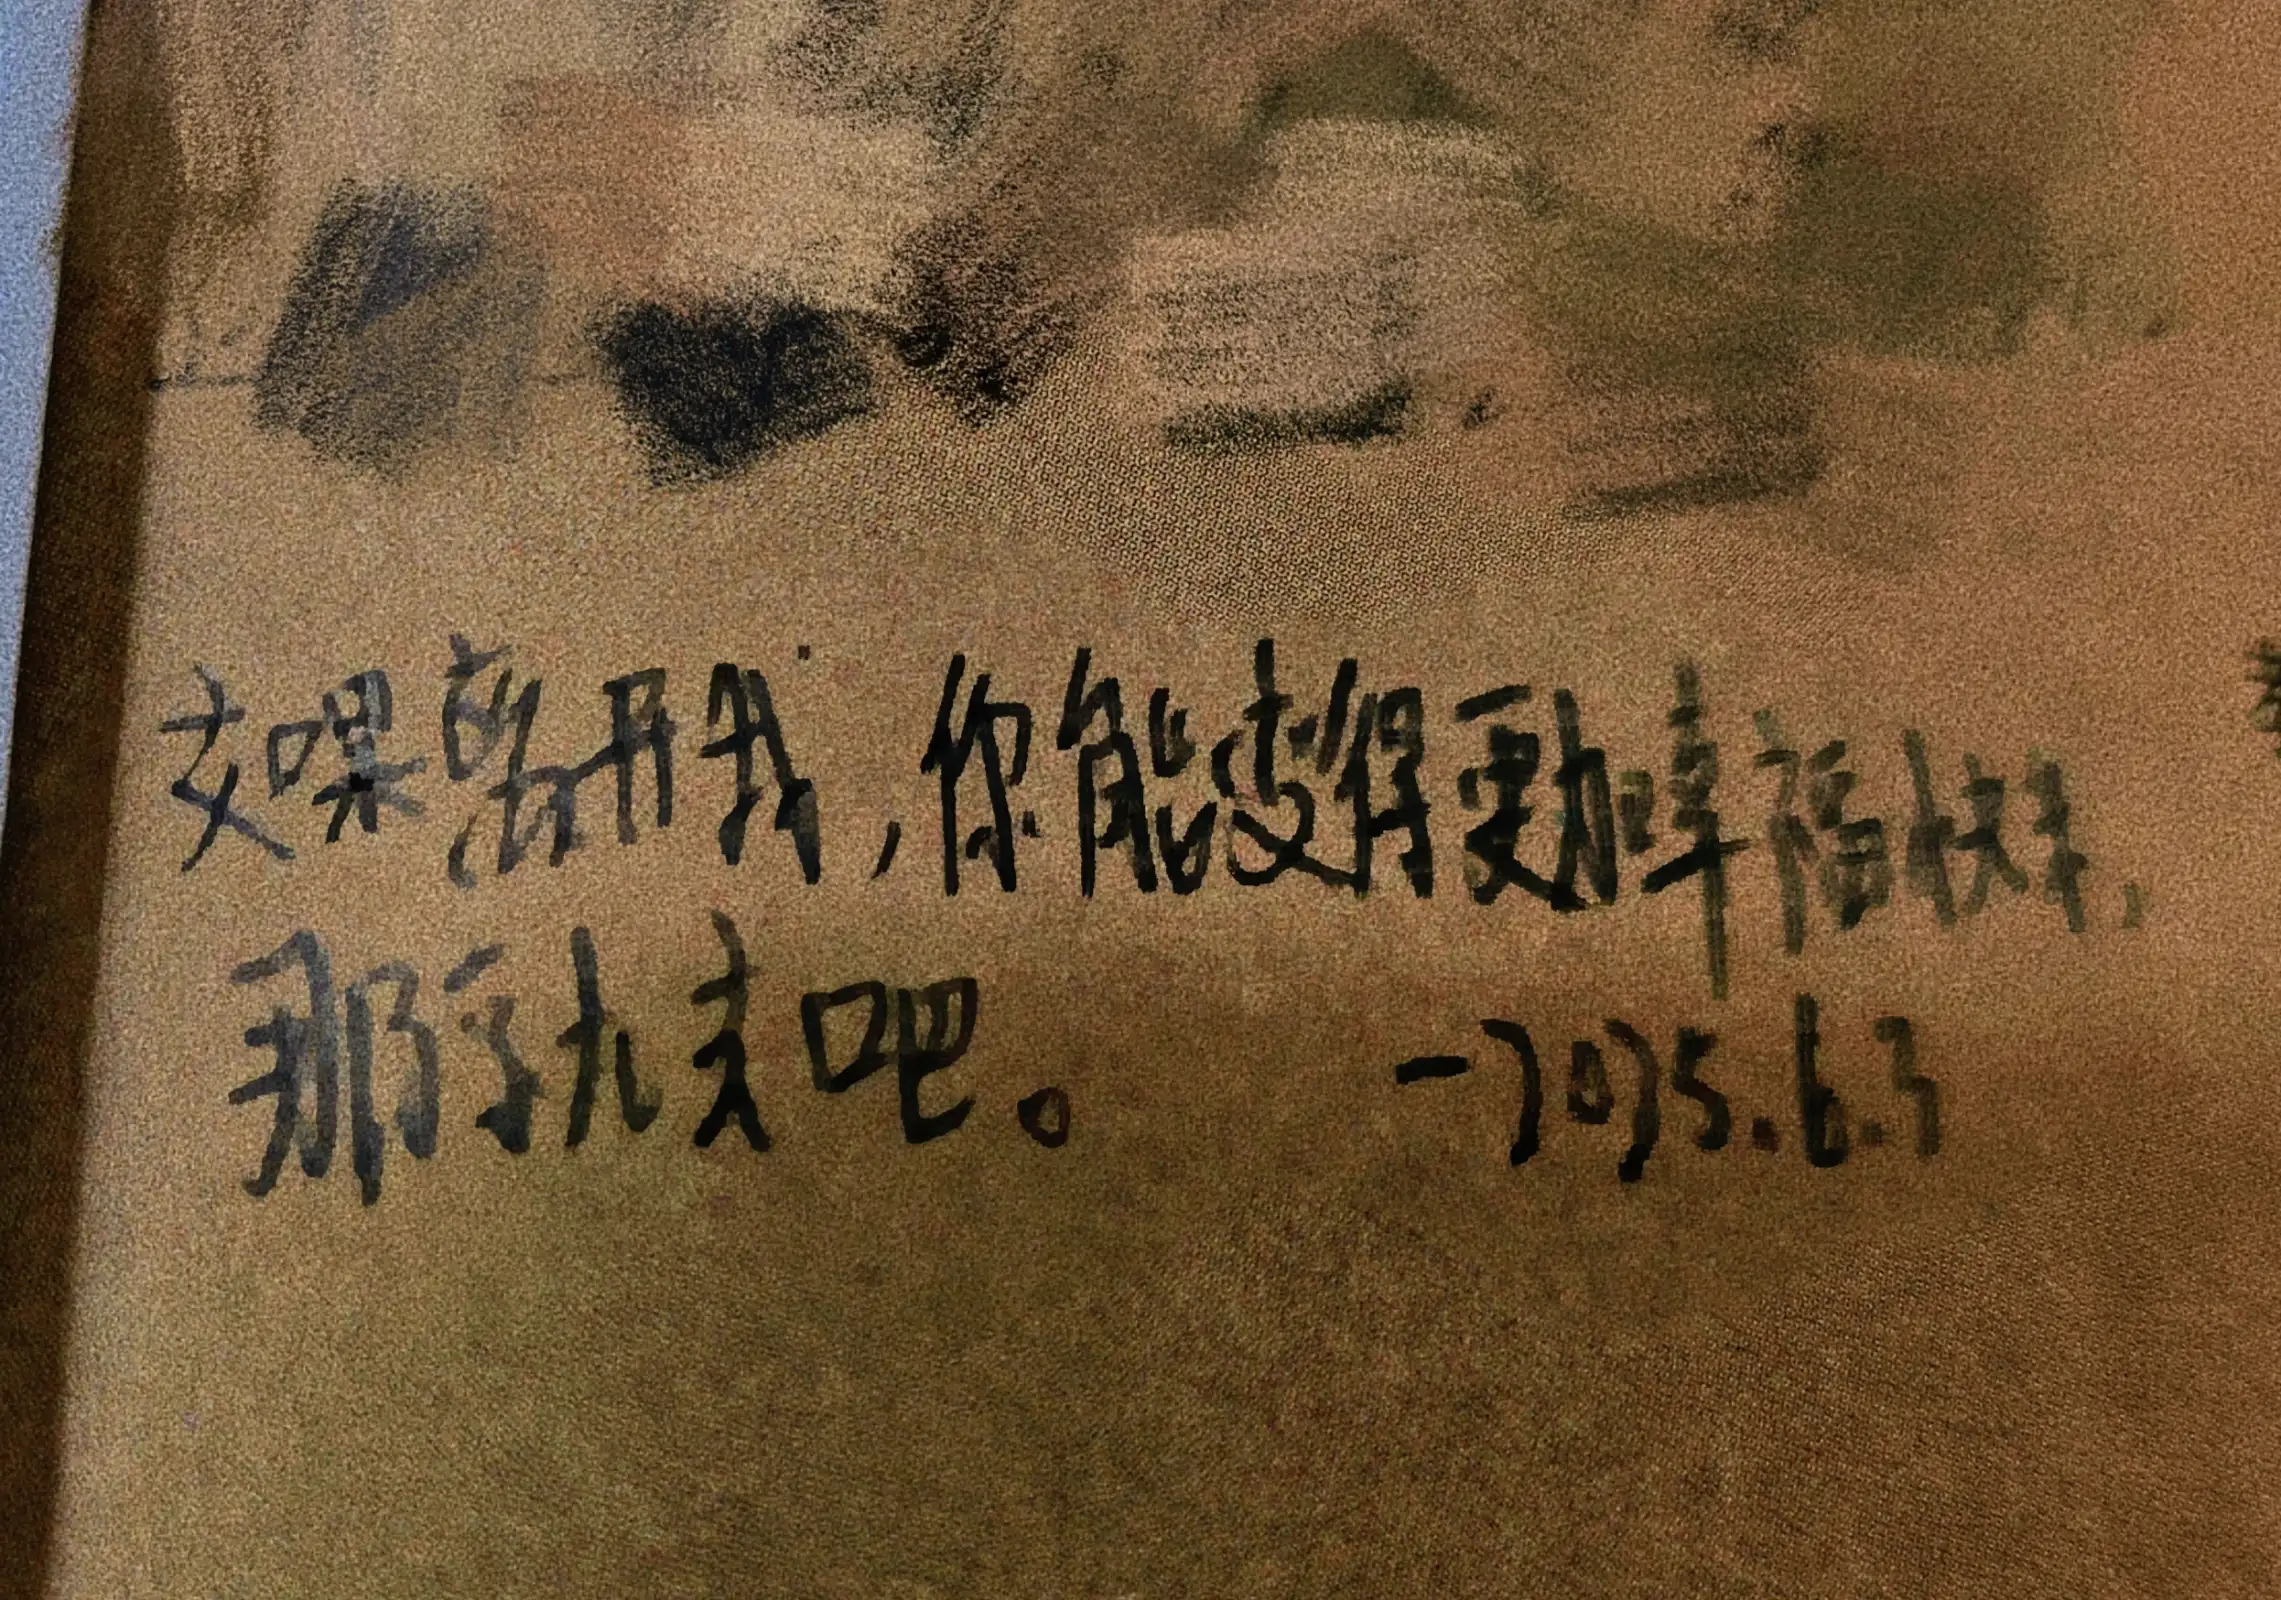 如果离开我，你能变得更加幸福快乐，
那么就去吧。 —2025.6.3